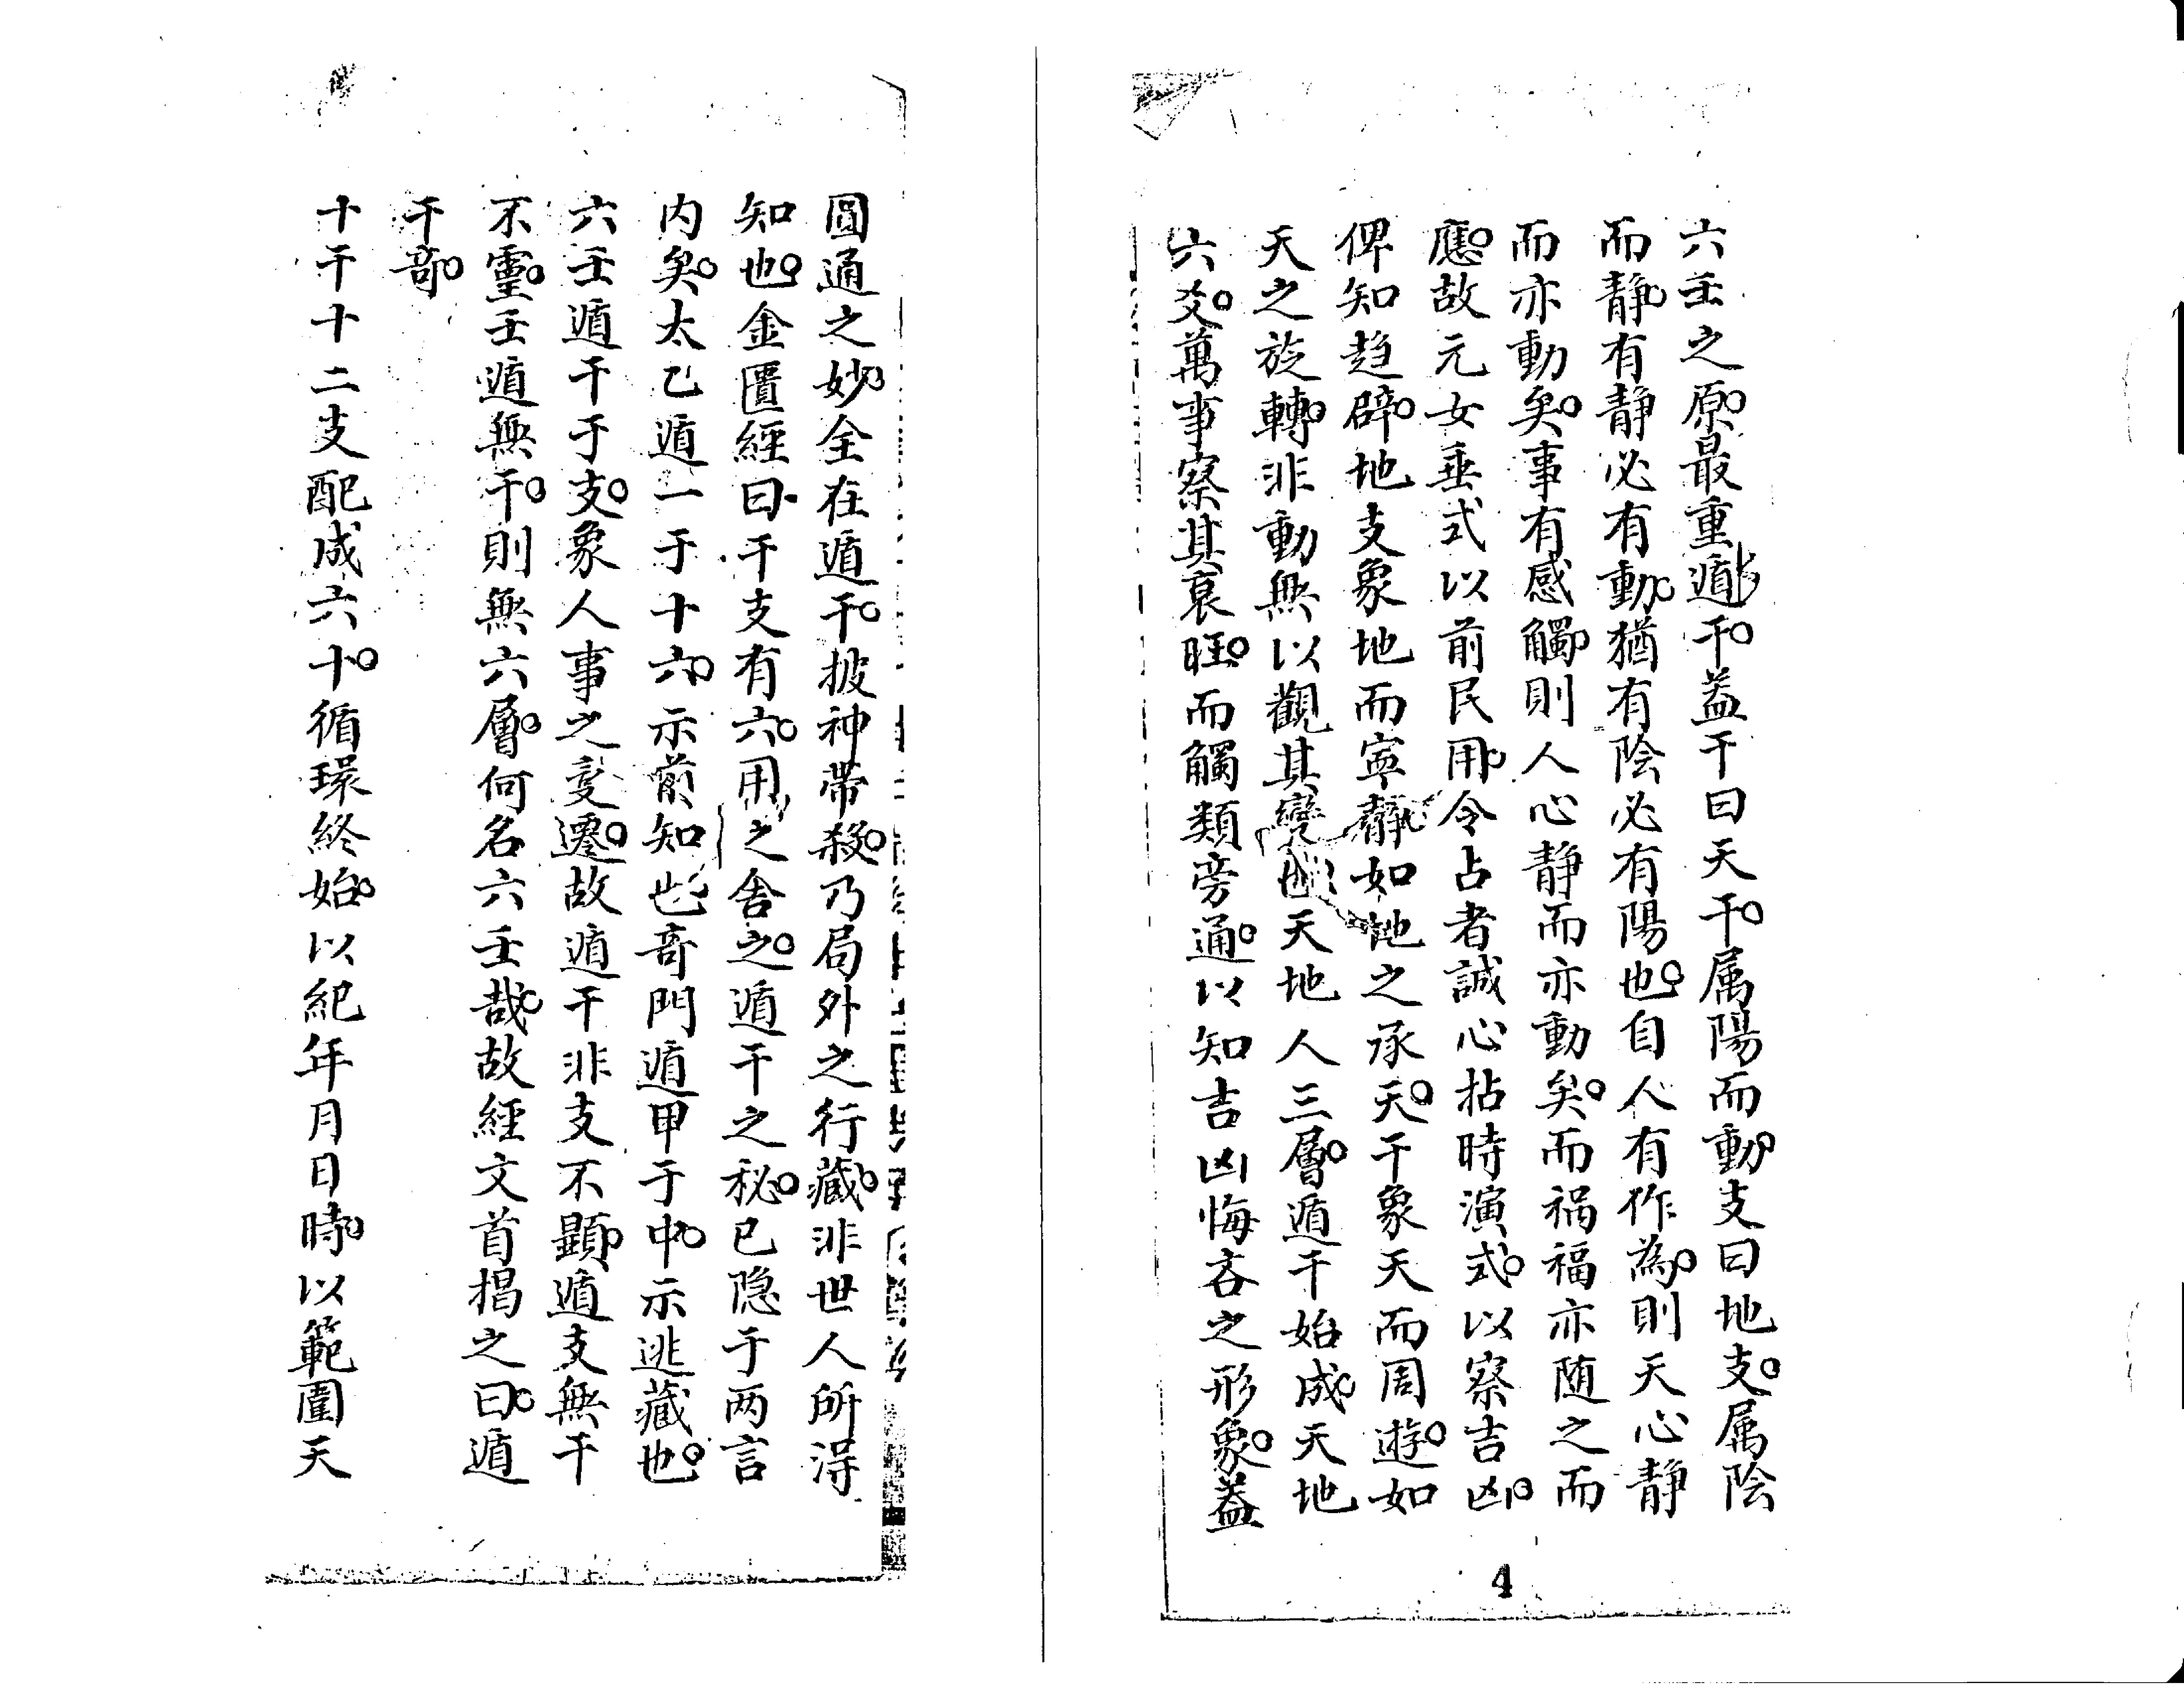 六壬之原。最重遁干。蓋干曰天干。属陽而動。支曰地支。属陰
而静。有静必有動。猶有陰必有陽也。自人有作為。則天心静
而亦動矣。事有感觸。則人心静而亦動矣。而禍福亦随之而
應。故元女垂式以前民用。令占者誠心拈時演式。以察吉凶。
俾知趋辟。地支象地而寧静。如地之承天。干象天而周遊。如
天之旋轉。非動無以觀其變也。天地人三層。遁干始成。天地
六爻。萬事察其衰旺。而觸類旁通。以知吉凶悔吝之形象。蓋
4
圓通之妙。全在遁干。披神帶殺。乃局外之行藏。非世人所得
知也。金匱經曰。干支有六。用之舍之。遁干之秘。已隐于两言
内矣。太乙遁一于十六。示前知也。竒門遁甲于中。示逃藏也。
六壬遁干于支。象人事之变遷。故遁干非支不顯。遁支無干
不靈。壬遁無干。則無六層。何名六壬哉。故經文首揭之曰。遁
干竒。
十干十二支配成六十。循環終始。以紀年月日時。以範圍天